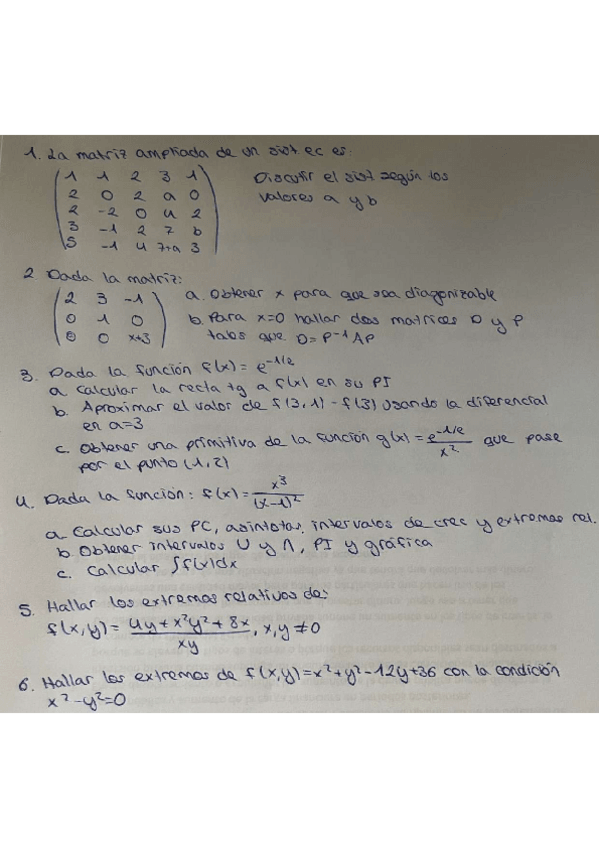 1. La matriz ampliada de un sist ec es:
1 1 2 3 1 Discutir el sist según los
2 0 2 a 0 valores a y b
2 -2 0 4 2
3 -1 2 7 b
5 -1 4 7+a 3
2. Dada la matriz:
2 3 -1 a. Obtener x para que sea diagonizable
0 1 0 b. Para x=0 hallar dos matrices D y P
0 0 x+3 tabs que D=P⁻¹AP
3. Dada la función f(x) = e^-1/2
a. Calcular la recta tg a f(x) en su PI
b. Aproximar el valor de f(3,1) - f(3) usando la diferencial
en a=3
c. Obtener una primitiva de la función g(x) = e^-1/2 / x² que pase
por el punto (1,2)
4. Dada la función: f(x) = x³ / (x-1)²
a. Calcular sus PC, asintotas, intervalos de crec y extremos rel.
b. Obtener intervalos ∪ y ∩, PI y gráfica
c. Calcular ∫f(x)dx
5. Hallar los extremos relativos de:
f(x,y) = 4y + x²y² + 8x / xy, x,y ≠ 0
6. Hallar los extremos de f(x,y) = x² + y² - 12y + 36 con la condición
x² - y² = 0